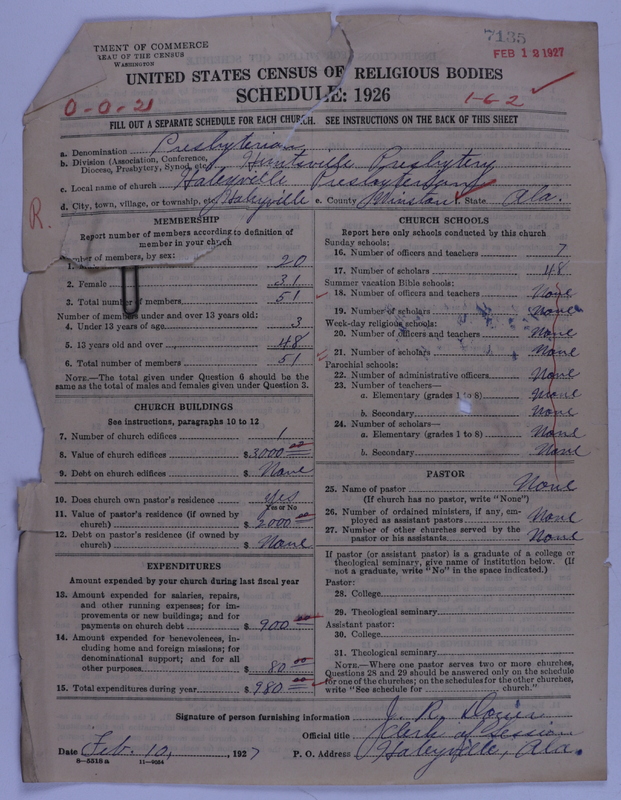 7135
TMENT OF COMMERCE
EAU OF THE CENSUS
WASHINGTON
FEB 12 1927
UNITED STATES CENSUS OF RELIGIOUS BODIES
SCHEDULE: 1926
0-0-21
1-62
FILL OUT A SEPARATE SCHEDULE FOR EACH CHURCH. SEE INSTRUCTIONS ON THE BACK OF THIS SHEET
a. Denomination Presbyterian
b. Division (Association, Conference, Diocese, Presbytery, Synod, etc.) Huntsville Presbytery
c. Local name of church Haleyville Presbyterian
d. City, town, village, or township, etc. Haleyville e. County Winston State Ala.
R.
MEMBERSHIP
Report number of members according to definition of
member in your church
mber of members, by sex:
1. 20
2. Female 31
3. Total number of members 51
Number of members under and over 13 years old:
4. Under 13 years of age 3
5. 13 years old and over 48
6. Total number of members 51
NOTE.—The total given under Question 6 should be
same as the total of males and females given under Question 3.
CHURCH BUILDINGS
See instructions, paragraphs 10 to 12
7. Number of church edifices 1
8. Value of church edifices $ 3000 00
9. Debt on church edifices $ None
10. Does church own pastor's residence yes
Yes or No
11. Value of pastor's residence (if owned by
church) $ 2000 00
12. Debt on pastor's residence (if owned by
church) $ None
EXPENDITURES
Amount expended by your church during last fiscal year
13. Amount expended for salaries, repairs,
and other running expenses; for im-
provements or new buildings; and for
payments on church debt $ 900 00
14. Amount expended for benevolences, in-
cluding home and foreign missions; for
denominational support; and for all
other purposes $ 80 00
15. Total expenditures during year $ 980 00
CHURCH SCHOOLS
Report here only schools conducted by this church
Sunday schools:
16. Number of officers and teachers 7
17. Number of scholars 48
Summer vacation Bible schools:
18. Number of officers and teachers None
19. Number of scholars None
Week-day religious schools:
20. Number of officers and teachers None
21. Number of scholars None
Parochial schools:
22. Number of administrative officers None
23. Number of teachers—
a. Elementary (grades 1 to 8) None
b. Secondary None
24. Number of scholars—
a. Elementary (grades 1 to 8) None
b. Secondary None
PASTOR
25. Name of pastor None
(If church has no pastor, write "None")
26. Number of ordained ministers, if any, em-
ployed as assistant pastors None
27. Number of other churches served by the
pastor or his assistants None
If pastor (or assistant pastor) is a graduate of a college or
theological seminary, give name of institution below. (If
not a graduate, write "No" in the space indicated.)
Pastor:
28. College
29. Theological seminary
Assistant pastor:
30. College
31. Theological seminary
NOTE.—Where one pastor serves two or more churches,
Questions 28 and 29 should be answered only on the schedule
for one of the churches; on the schedules for the other churches,
write "See schedule for church."
Signature of person furnishing information J. R. Dozier
Official title Clerk of Session
Date Feb. 10, 1927 P. O. Address Haleyville, Ala.
8-5518a 11-9054